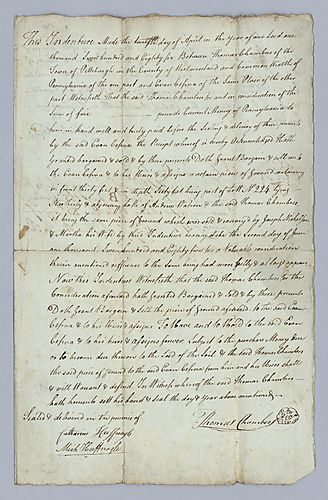 This Indenture Made the twelfth day of April in the Year of our Lord one
thousand Seven hundred and Eighty six Between Thomas Chambers of the
Town of Pittsburgh in the County of Westmoreland and Common Wealth of
Pennsylvania of the one part and Evan of the Same Place of the other
part Witnesseth that the said Thomas Chambers for and in consideration of the
Sum of five pounds Current Money of Pennsylvania to
him in hand well and truly paid before the Sealing & delivery of these presents
by the said Evan the Receipt whereof is hereby Acknowledged Hath
Granted bargained & sold & by these presents Doth Grant Bargain & sell unto
the Evan & to his heirs & assigns a certain piece of Ground containing
in front thirty feet & in depth Sixty feet being part of Lott No. 224 Lying
& adjoining lotts of Andrew Watson & the said Thomas Chambers
it being the same piece of Ground which was sold & conveyed by Joseph
& Martha his Wife by this Indenture bearing date the Second day of
one thousand Seven hundred and Eighty five for a Valuable consideration
therein mentioned reference to the same being had more fully & at large appears
Now this Indenture Witnesseth that the said Thomas Chambers for the
Consideration aforesaid hath Granted Bargained & Sold & by these presents
Doth Grant Bargain & Sell the piece of Ground aforesaid to the said Evan
& to his heirs & assigns To Have and to Hold to the said Evan
& to his heirs & assigns forever Subject to the purchase Money due
or to become due thereon to the Lord of the Soil & the said Thomas Chambers
the said piece of Ground to the said Evan from him and his Heirs shall
& will Warrant & defend In Witness whereof the said Thomas Chambers
hath hereunto set his hand & seal the day & Year above mentioned
Sealed & delivered in the presence of
Thomas Chambers
Catharine Huffnagle
Mich Huffnagle